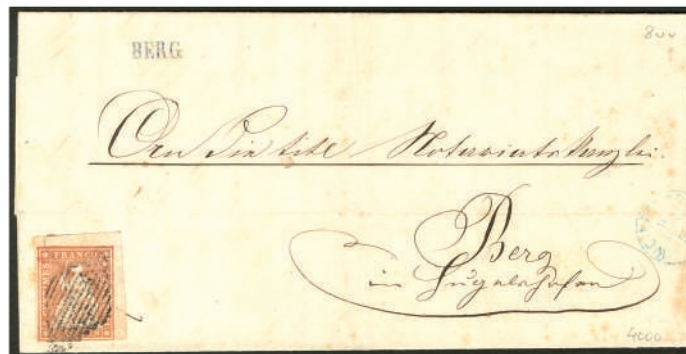 BERG
800
An Die titl Notariatskanzlei.
Berg
in Hugelshofen
FRANCO
4000